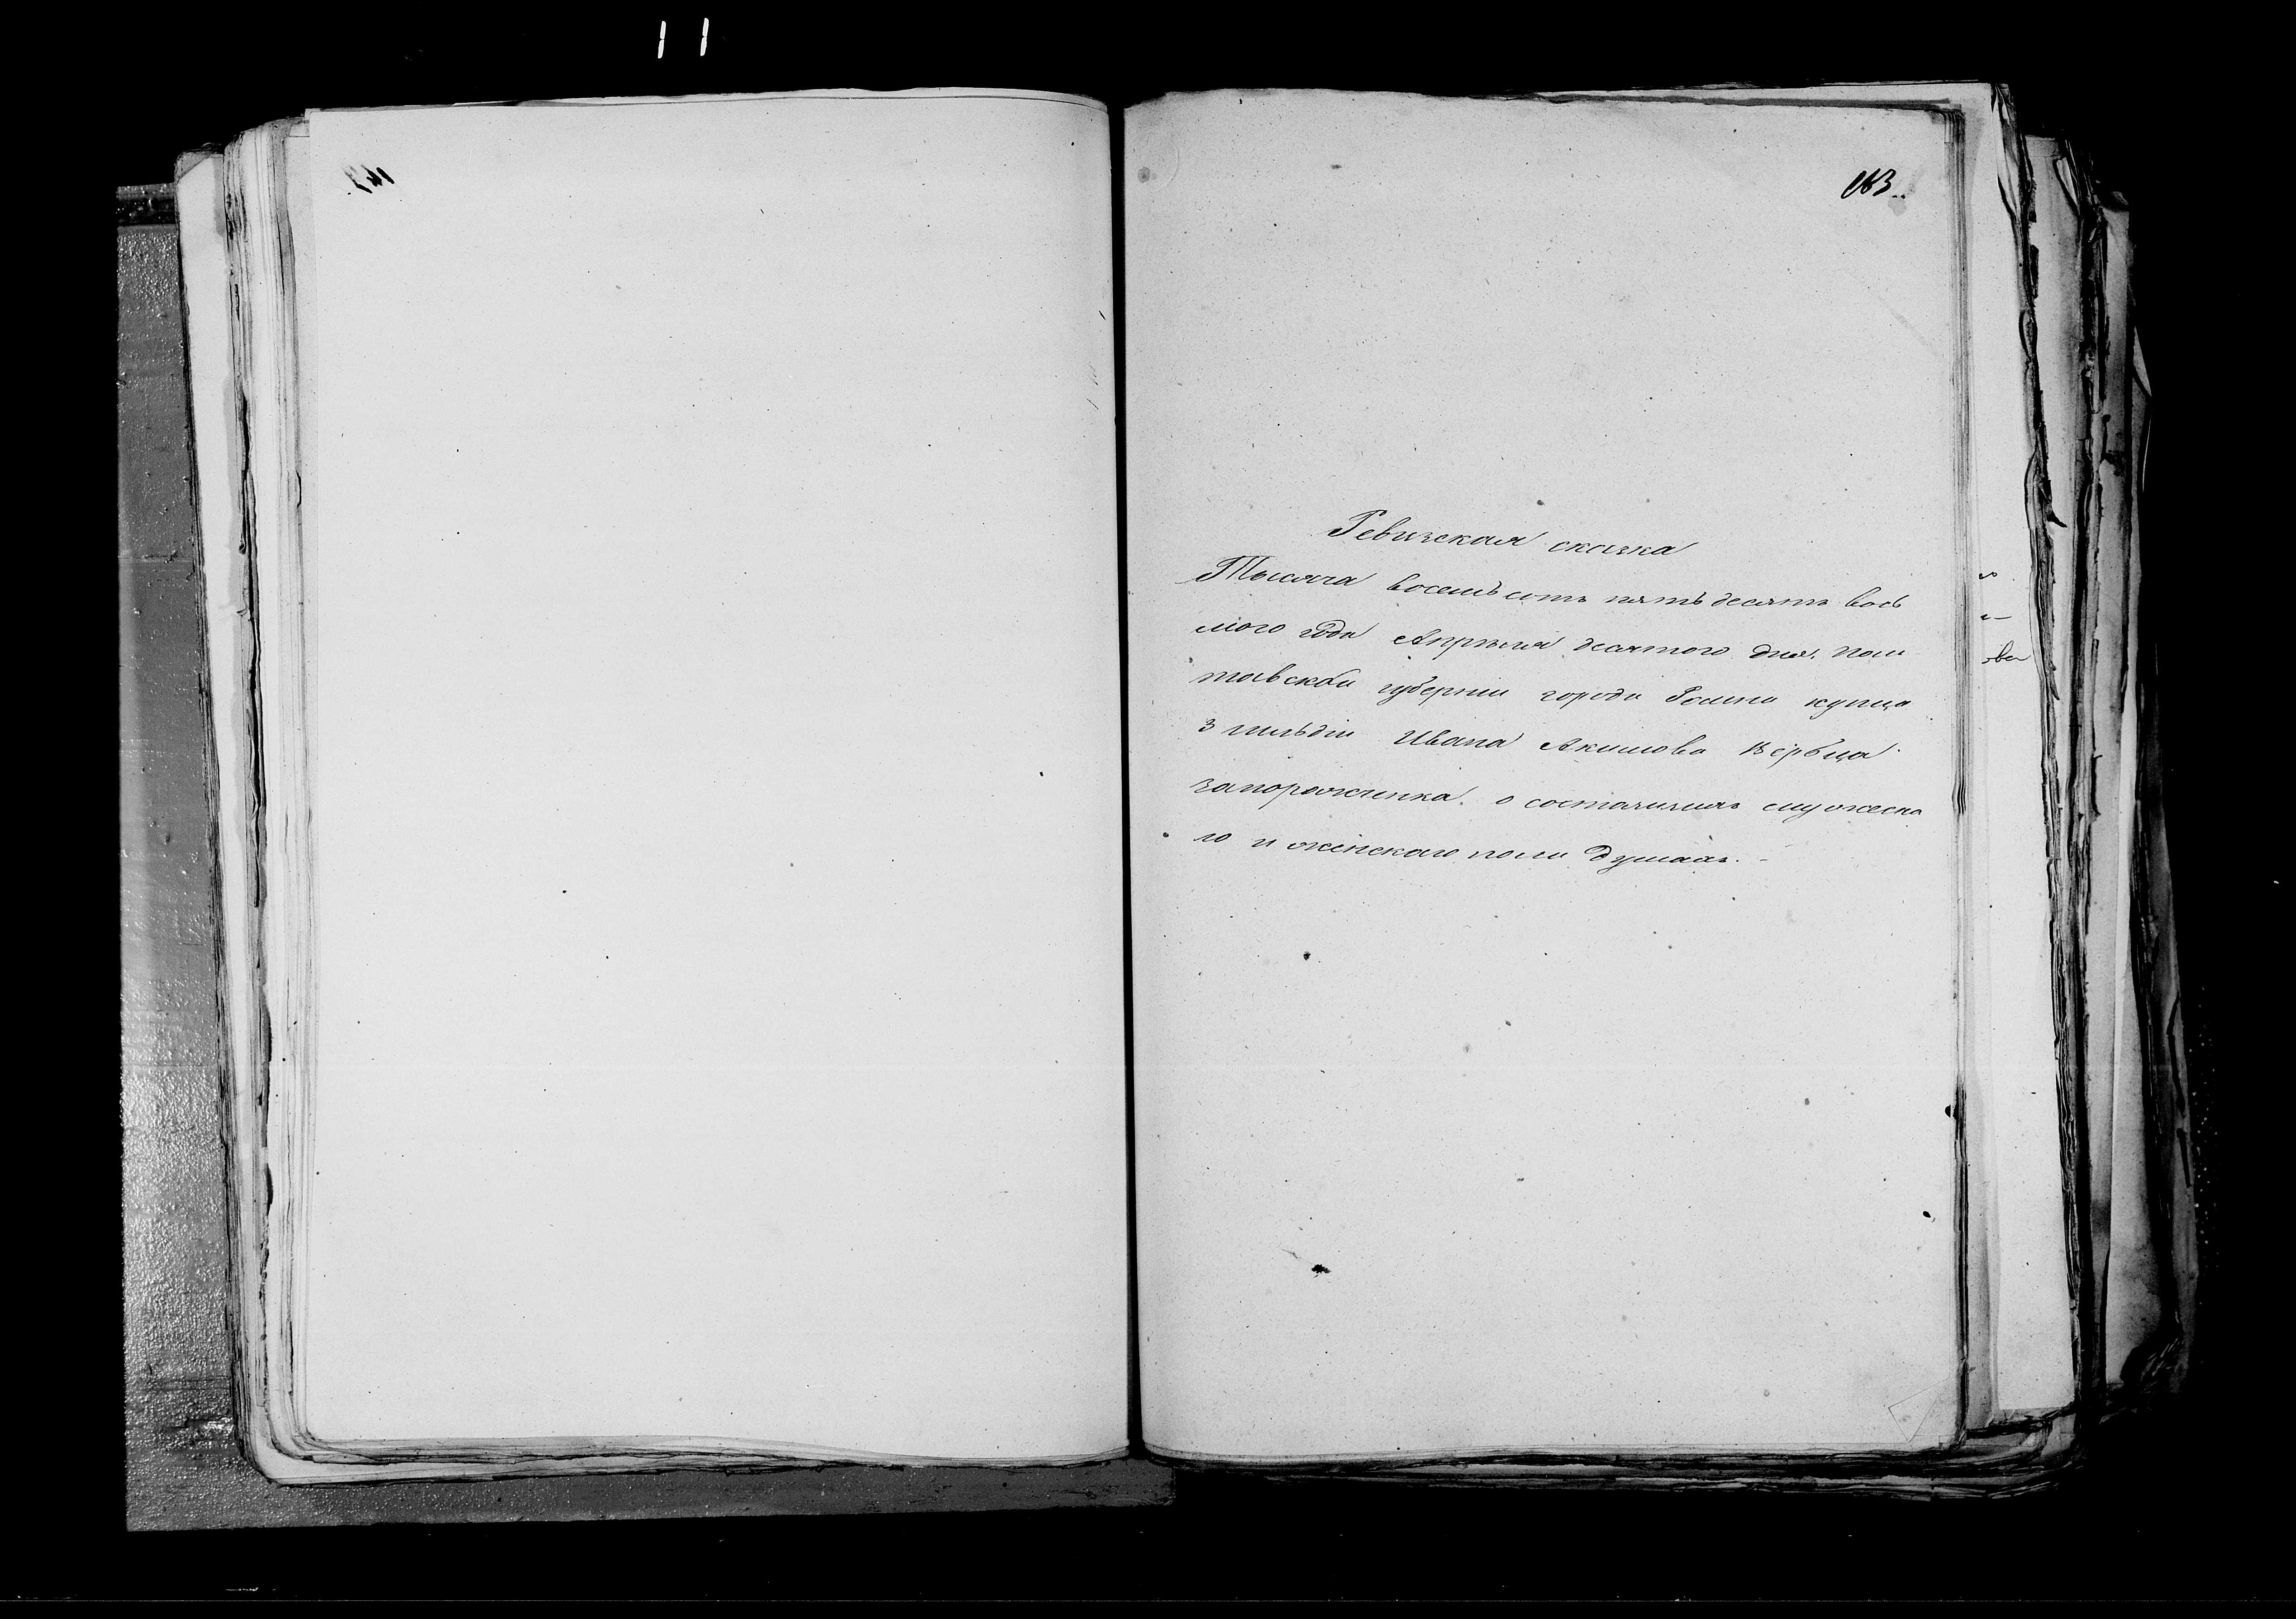 163.
Ревизская сказка
Тысяча восемьсотъ пятьдесятъ вось
мого года Апрѣля десятого дня. Пол
тавской губерніи города Ромна купца
3 гильдіи Ивана Акимова Вербца
запорожченка о состоящихъ мужеска
го и женскаго пола душахъ. -